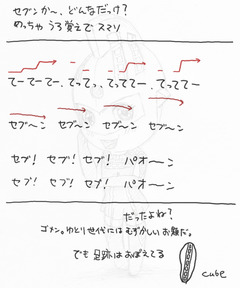 セブンか〜、どんなだっけ?
めっちゃ うろ覚えで スマソ
てーてーてー、てってっ、てっててー、てってて〜
セブ〜ン セブ〜ン セブ〜ン セブ〜ン
セブ! セブ! セブ! パオ〜ン
セブ! セブ! セブ! パオ〜ン
だったよね?
ゴメン。ゆとり世代には むずかしいお題だ。
でも 足跡はおぼえてる
cube